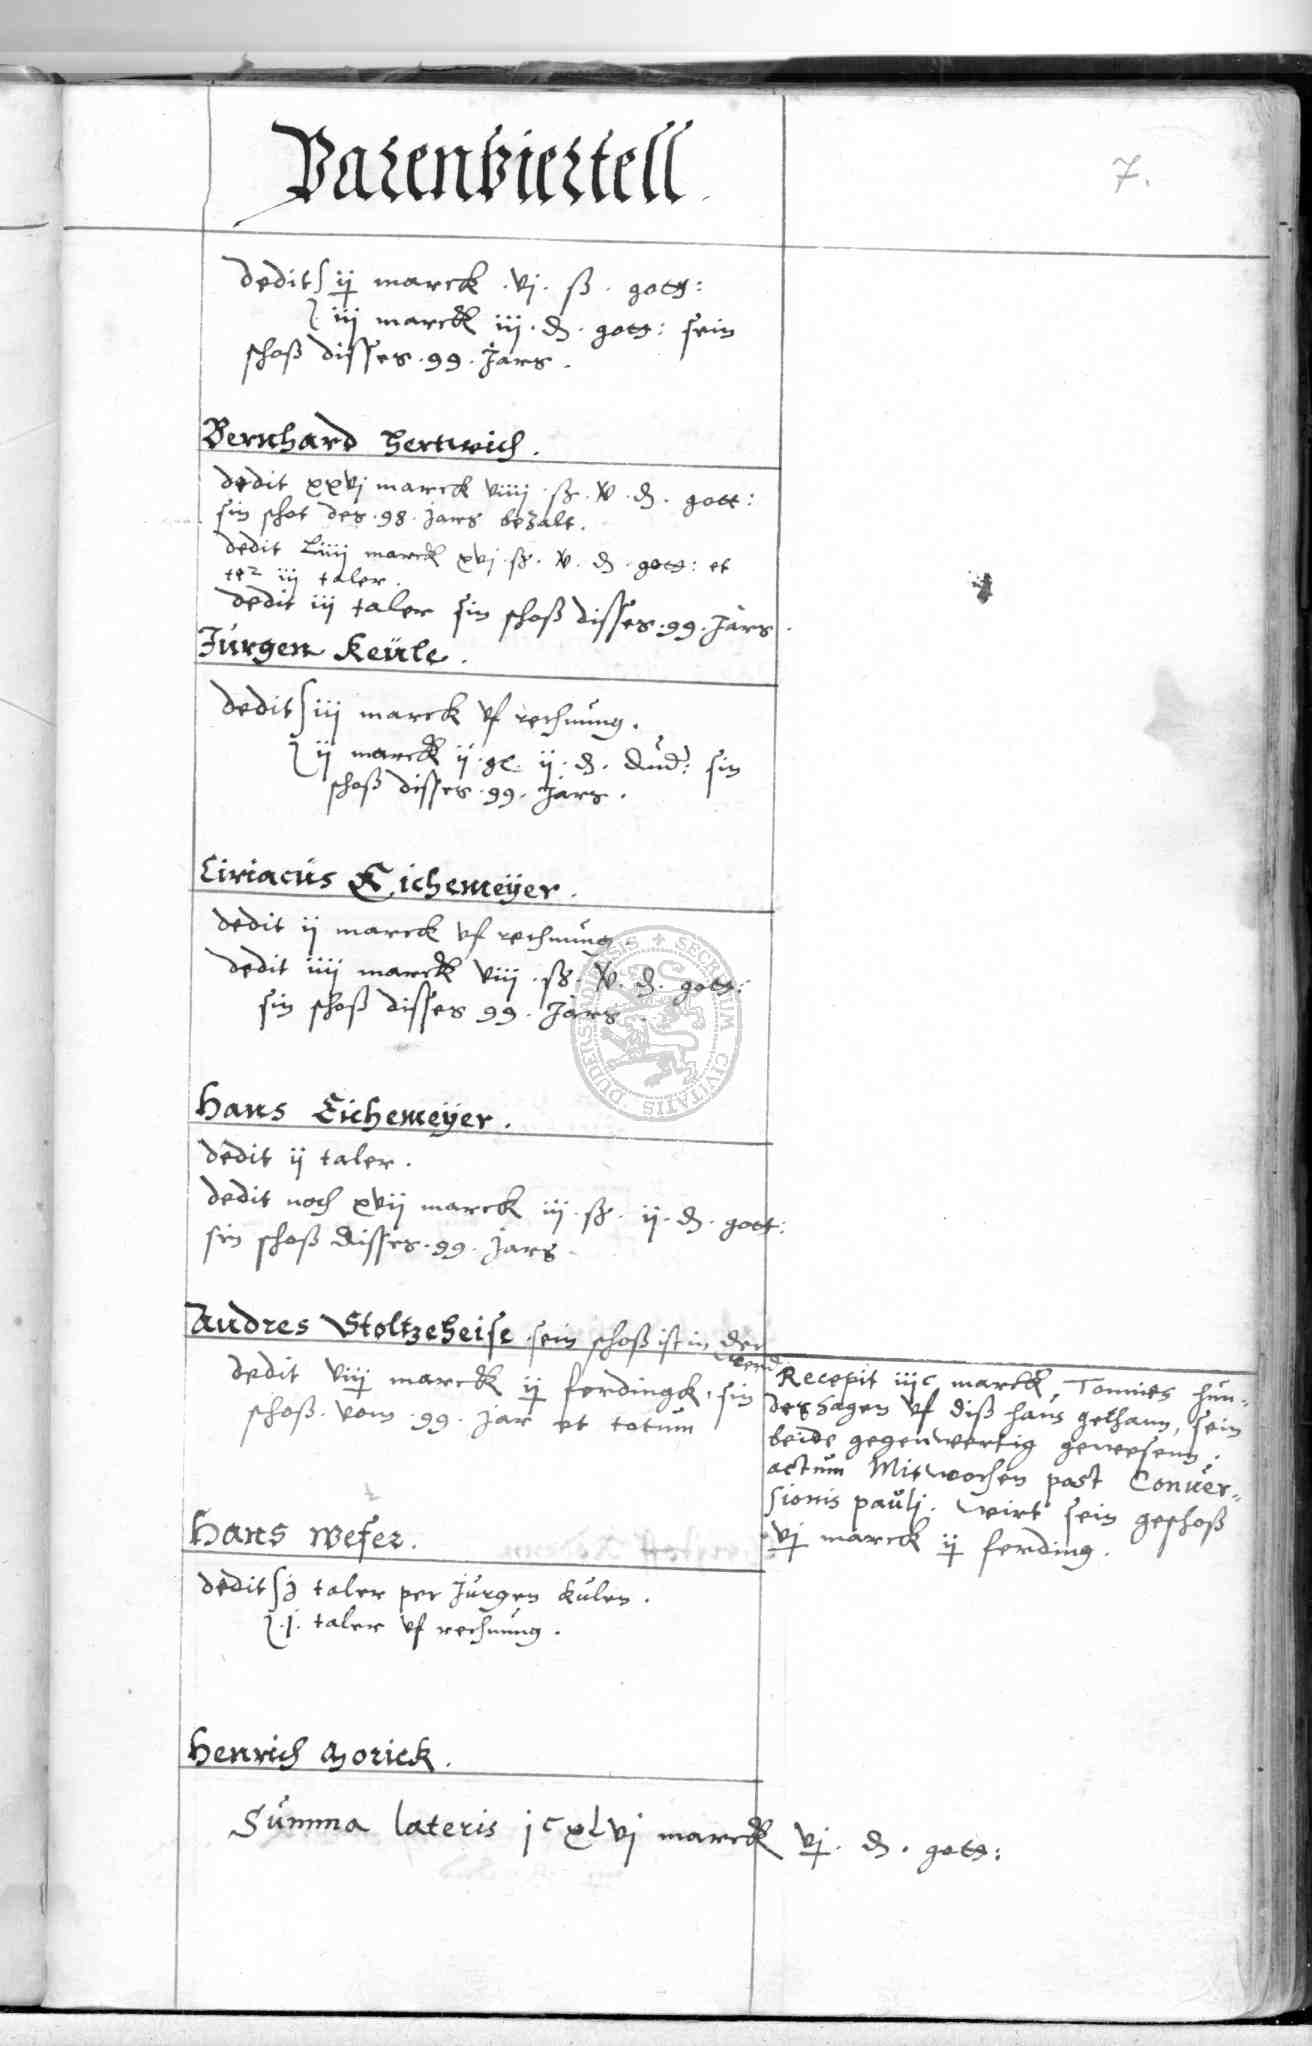 Barenviertell.
7.
dedit ij marck . vj . ß . gott:
iij marck iij . d . gott: sein
schoß disses . 99 . Jars .
Bernhard Hertwich .
dedit xxvj marck viiij . ß . v . d . gott:
sin schot des . 98 . jars bezalt .
dedit Liiij marck xvj . ß . v . d . gott: et
iij taler .
dedit iij taler sin schoß disses . 99 . Jars .
Jürgen Keüle .
dedit iij marck vf rechnüng .
ij marck ij . gl . ij . d . düd: sin
schoß disses . 99 . Jars .
Ciriacüs Eichemeÿer .
dedit ij marck vf rechnüng .
dedit iiij marck viij . ß . v . d . gott:
sin schoß disses 99 . Jars .
SECRETUM CIVITATIS DUDERSTADIENSIS
Hans Eichemeÿer .
dedit ij taler .
dedit noch xvij marck iij . ß . ij . d . gott:
sin schoß disses . 99 . jars
Andres Stoltzeheise . sein schoß ist in der
dedit viij marck ij ferdingk . sin
schoß . vom . 99 . jar et totum
Recepit iijc marck, Tonnies Hün-
dershagen vf diß haüs gethann, sein
beide gegenwertig gewesenn .
actum Mitwochen post Conüer-
sionis paülj . wirt sein geschoß
vj marck ij ferding .
Hans Wefer .
dedit j taler per Jürgen Külen .
. j . taler vf rechnüng .
Henrich Morick .
Sümma lateris jc xLvj marck vj . d . gott: